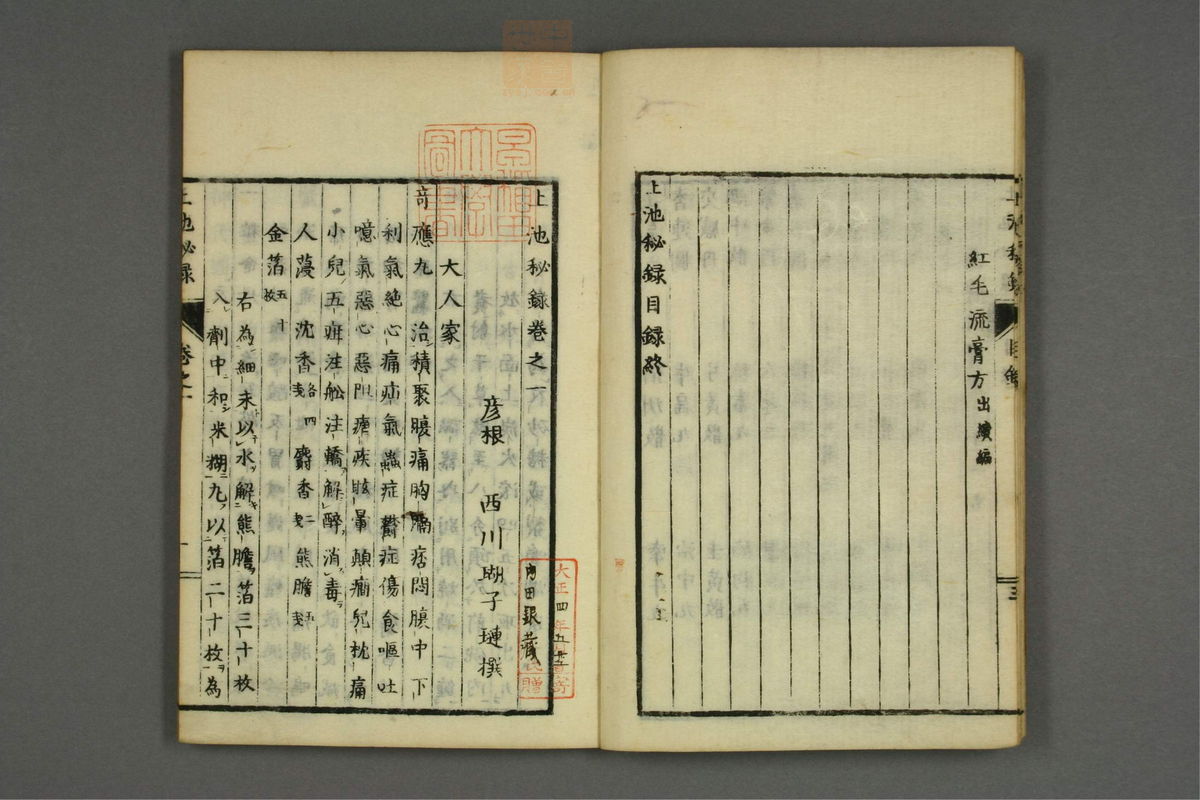 上池秘録　目録　三
紅毛流膏方出續編
上池秘録目録終
上池秘録巻之一
彦根　西川瑚子璉撰
大人家
奇應丸　治積聚腹痛胸膈痞悶腹中下
利氣絶心痛疝氣蟲症欝症傷食嘔吐
噫氣惡心惡阻瘧疾眩暈顛癇兒枕痛
小兒五疳注舩注轎解醉消毒
人葠沈香各四戔麝香二戔熊膽
金箔五十枚
右為細末以水解熊膽箔三十枚
入劑中和米糊丸以箔二十枚為
上池秘録　巻之一　一
大正四年
内田銀藏
寄贈